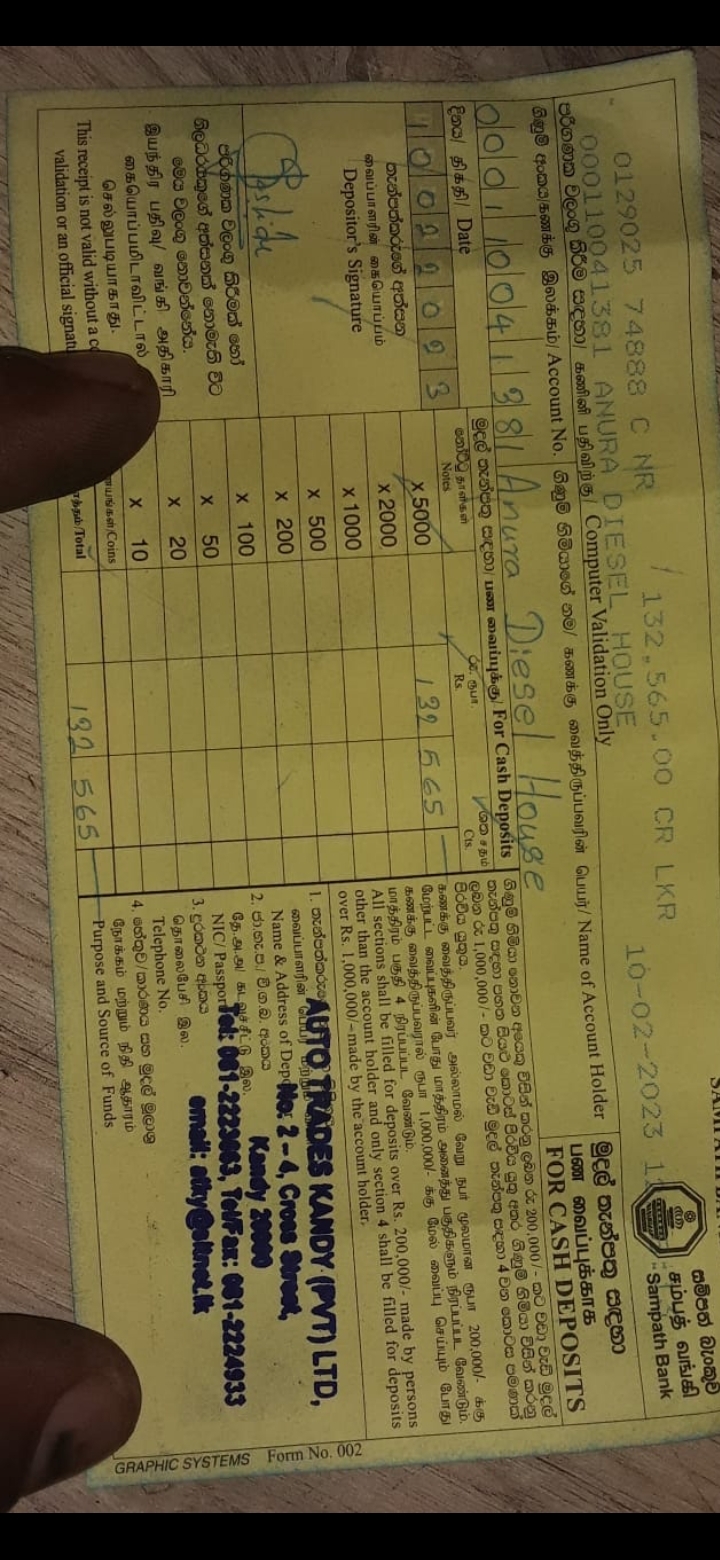 SAMPATH BANK
සම්පත් බැංකුව
சம்பத் வங்கி
Sampath Bank
0129025 74888 C NR / 132,565.00 CR LKR 10-02-2023
000110041381 ANURA DIESEL HOUSE
පරිගණක වලංගු කිරීම සඳහා/ கணினி பதிவிற்கு/ Computer Validation Only
මුදල් තැන්පතු සඳහා
பண வைப்புக்காக
FOR CASH DEPOSITS
ගිණුම් අංකය/கணக்கு இலக்கம்/ Account No.
ගිණුම් හිමියාගේ නම/ கணக்கு வைத்திருப்பவரின் பெயர்/ Name of Account Holder
000110041381 Anura Diesel House
දිනය/ திகதி/ Date
10022023
මුදල් තැන්පතු සඳහා/ பண வைப்புக்கு/ For Cash Deposits
නෝට්ටු/தாள்கள்
Notes
රු. ரூபா.
Rs.
ශත சதம்
Cts.
X 5000 132565 —
X 2000
X 1000
X 500
X 200
X 100
X 50
X 20
X 10
Coins
Total 132565 —
තැන්පත්කරුගේ අත්සන
வைப்பாளரின் கையொப்பம்
Depositor's Signature
පරිගණක වලංගු කිරීමක් හෝ
නිලධාරියකුගේ අත්සනක් නොමැති විට
මෙය වලංගු නොවන්නේය.
இயந்திர பதிவு/ வங்கி அதிகாரி
கையொப்பமிடாவிட்டால்
செல்லுபடியாகாது.
This receipt is not valid without a
validation or an official
ගිණුම් හිමියා නොවන අයෙකු විසින් කරනු ලබන රු 200,000/- කට වඩා වැඩි මුදල්
තැන්පතු සඳහා පහත සියළු කොටස් පිරවිය යුතු අතර ගිණුම් හිමියා විසින් කරනු
ලබන රු 1,000,000/- කට වඩා වැඩි මුදල් තැන්පතු සඳහා 4 වන කොටස පමණක්
පිරවිය යුතුය.
கணக்கு வைத்திருப்பவர் அல்லாமல் வேறு நபர் மூலமான ரூபா 200,000/- க்கு
மேற்பட்ட வைப்புகளின் போது மாத்திரம் அனைத்து பகுதிகளும் நிரப்பப்பட வேண்டும்.
கணக்கு வைத்திருப்பவரால் ரூபா 1,000,000/- க்கு மேல் வைப்பு செய்யும் போது
மாத்திரம் பகுதி 4 நிரப்பப்பட வேண்டும்.
All sections shall be filled for deposits over Rs. 200,000/- made by persons
other than the account holder and only section 4 shall be filled for deposits
over Rs. 1,000,000/-made by the account holder.
1. තැන්පත්කරු
வைப்பாளரின்
Name & Address of
AUTO TRADES KANDY (PVT) LTD,
No: 2 - 4, Cross Street,
Kandy 20000
Tel: 081-2223063, Tel/Fax: 081-2224933
email: atky@sltnet.lk
2. ජා.හැ.ප./ වි.ග.බ. අංකය
தே.அ.அ/ கடவுச்சீட்டு இல.
NIC/ Passport
3. දුරකථන අංකය
தொலைபேசி இல.
Telephone No.
4. හේතුව/කාරණය සහ මුදල් මූලාශ්‍ර
நோக்கம் மற்றும் நிதி ஆதாரம்
Purpose and Source of Funds
GRAPHIC SYSTEMS Form No. 002